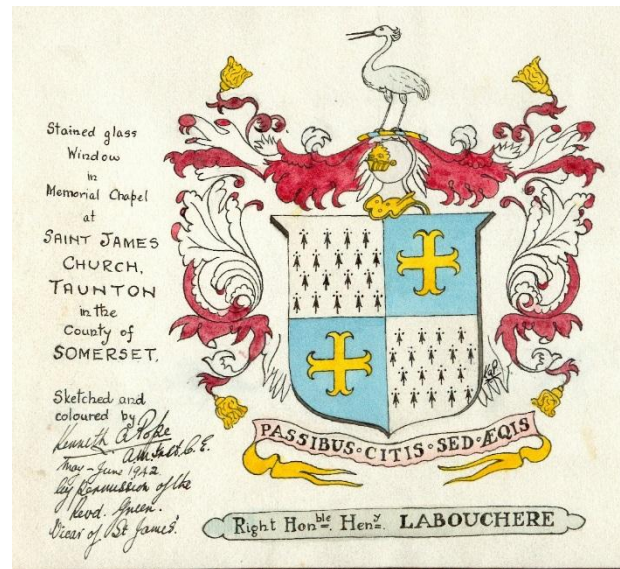 Stained glass
Window
in
Memorial Chapel
at
SAINT JAMES
CHURCH,
TAUNTON
in the
County of
SOMERSET,
Sketched and
coloured by
Kenneth G Pope
A.M.Inst.C.E.
May - June 1942
by permission of the
Revd. Green.
Vicar of St James'.
KGP
PASSIBUS • CITIS • SED • ÆQIS
Right Honble. Heny. LABOUCHERE